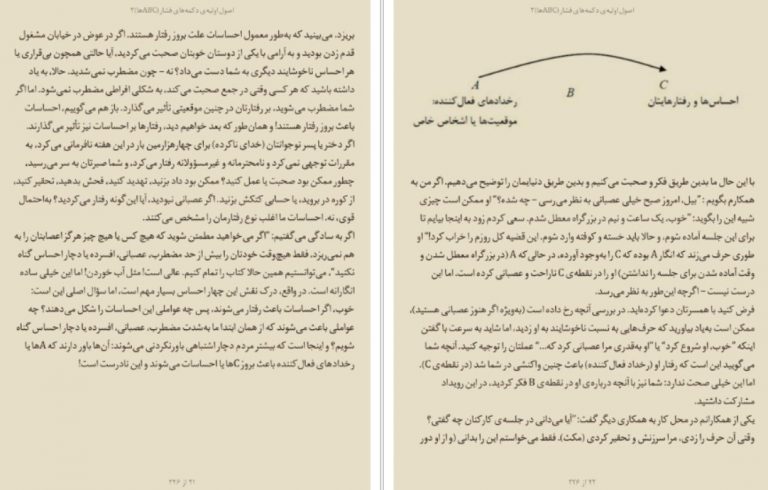 اصول اولیه‌ی دکمه‌های فشار (ABCها)/۳
بریزد. می‌بینید که به‌طور معمول احساسات علت بروز رفتار هستند. اگر در عوض در خیابان مشغول
قدم زدن بودید و به آرامی با یکی از دوستان خوبتان صحبت می‌کردید، آیا حالتی همچون بی‌قراری یا
هر احساس ناخوشایند دیگری به شما دست می‌داد؟ نه – چون مضطرب نمی‌شدید. حالا، به یاد
داشته باشید که هر کسی وقتی در جمع صحبت می‌کند، به شکلی افراطی مضطرب نمی‌شود. اما اگر
شما مضطرب می‌شوید، بر رفتارتان در چنین موقعیتی تأثیر می‌گذارد. باز هم می‌گوییم، احساسات
باعث بروز رفتار هستند! و همان‌طور که بعد خواهیم دید، رفتارها بر احساسات نیز تأثیر می‌گذارند.
اگر دختر یا پسر نوجوانتان (خدای ناکرده) برای چهارهزارمین بار در این هفته نافرمانی می‌کرد، به
مقررات توجهی نمی‌کرد و نامحترمانه و غیرمسؤولانه رفتار می‌کرد، و شما صبرتان به سر می‌رسید،
چطور ممکن بود صحبت یا عمل کنید؟ ممکن بود داد بزنید، تهدید کنید، فحش بدهید، تحقیر کنید،
از کوره در بروید، یا حسابی کتکش بزنید. اگر عصبانی نبودید، آیا این‌گونه رفتار می‌کردید؟ به‌احتمال
قوی، نه. احساسات ما اغلب نوع رفتارمان را مشخص می‌کنند.
اگر به سادگی می‌گفتیم: "اگر می‌خواهید مطمئن شوید که هیچ کس یا هیچ چیز هرگز اعصابتان را به
هم نمی‌ریزد، فقط هیچ‌وقت خودتان را بیش از حد مضطرب، عصبانی، افسرده یا دچار احساس گناه
نکنید"، می‌توانستیم همین حالا کتاب را تمام کنیم. عالی است! مثل آب خوردن! اما این خیلی ساده
انگارانه است. در واقع، درک نقش این چهار احساس بسیار مهم است، اما سؤال اصلی این است:
خوب، اگر احساسات باعث رفتار می‌شوند، پس چه عواملی این احساسات را شکل می‌دهند؟ چه
عواملی باعث می‌شوند که از همان ابتدا ما به‌شدت مضطرب، عصبانی، افسرده یا دچار احساس گناه
شویم؟ و اینجا است که بیشتر مردم دچار اشتباهی باورنکردنی می‌شوند: آن‌ها باور دارند که Aها یا
رخدادهای فعال‌کننده باعث بروز Cها یا احساسات می‌شوند و این نادرست است!
۲۱ از ۲۲۶
اصول اولیه‌ی دکمه‌های فشار (ABCها)/۳
A
B
C
رخدادهای فعال‌کننده:
موقعیت‌ها یا اشخاص خاص
احساس‌ها و رفتارهایتان
با این حال ما بدین طریق فکر و صحبت می‌کنیم و بدین طریق دنیایمان را توضیح می‌دهیم. اگر من به
همکارم بگویم: "بیل، امروز صبح خیلی عصبانی به نظر می‌رسی – چه شده؟" او ممکن است چیزی
شبیه این را بگوید: "خوب، یک ساعت و نیم در بزرگراه معطل شدم. سعی کردم زود به اینجا بیایم تا
برای این جلسه آماده شوم، و حالا باید خسته و کوفته وارد شوم. این قضیه کل روزم را خراب کرد!" او
طوری حرف می‌زند که انگار A بوده که C را به‌وجود آورده، در حالی‌که A (در بزرگراه معطل شدن و
وقت آماده شدن برای جلسه را نداشتن) او را در نقطه‌ی C ناراحت و عصبانی کرده است. اما این
درست نیست – اگرچه این‌طور به نظر می‌رسد.
فرض کنید با همسرتان دعوا کرده‌اید. در بررسی آنچه رخ داده است (به‌ویژه اگر هنوز عصبانی هستید)،
ممکن است به‌یاد بیاورید که حرف‌هایی به نسبت ناخوشایند به او زدید، اما شاید به سرعت با گفتن
اینکه "خوب، او شروع کرد" یا "او به‌قدری مرا عصبانی کرد که..." عملتان را توجیه کنید. آنچه شما
می‌گویید این است که رفتار او (رخداد فعال‌کننده) باعث چنین واکنشی در شما شد (در نقطه‌ی C).
اما این خیلی صحت ندارد: شما نیز با آنچه درباره‌ی او در نقطه‌ی B فکر کردید، در این رویداد
مشارکت داشتید.
یکی از همکارانم در محل کار به همکاری دیگر گفت: "آیا می‌دانی در جلسه‌ی کارکنان چه گفتی؟
وقتی آن حرف را زدی، مرا سرزنش و تحقیر کردی (مکث). فقط می‌خواستم این را بدانی (و از او دور
۲۲ از ۲۲۶